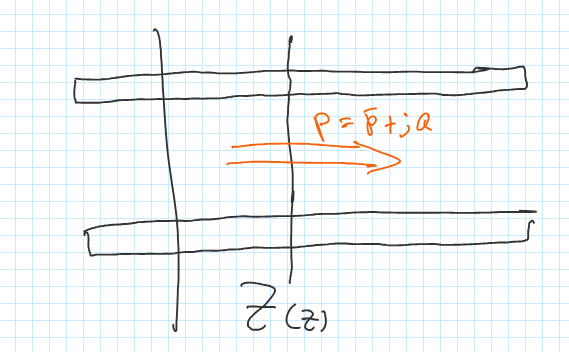 P = p̄ + jQ
Z(z)